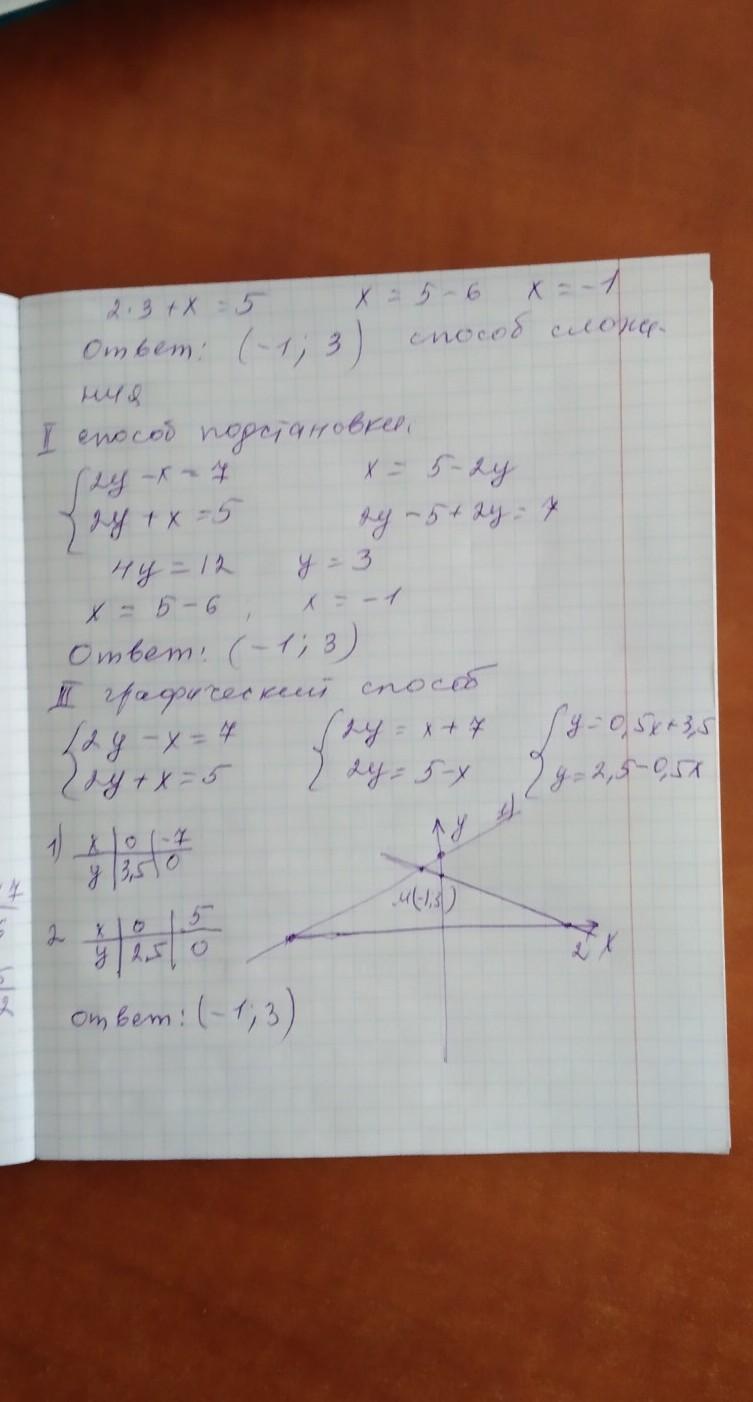 2·3+x=5   x=5-6   x=-1
Ответ: (-1; 3) способ сложе-
ния
II способ подстановки.
{2y-x=7   x=5-2y
{2y+x=5   2y-5+2y=7
4y=12   y=3
x=5-6,   x=-1
Ответ: (-1; 3)
III графический способ
{2y-x=7   {2y=x+7   {y=0,5x+3,5
{2y+x=5   {2y=5-x   {y=2,5-0,5x
1) x | 0 | -7
y | 3,5 | 0
2 x | 0 | 5
y | 2,5 | 0
1)
y
M(-1,3)
2 x
ответ: (-1; 3)
7
5
2